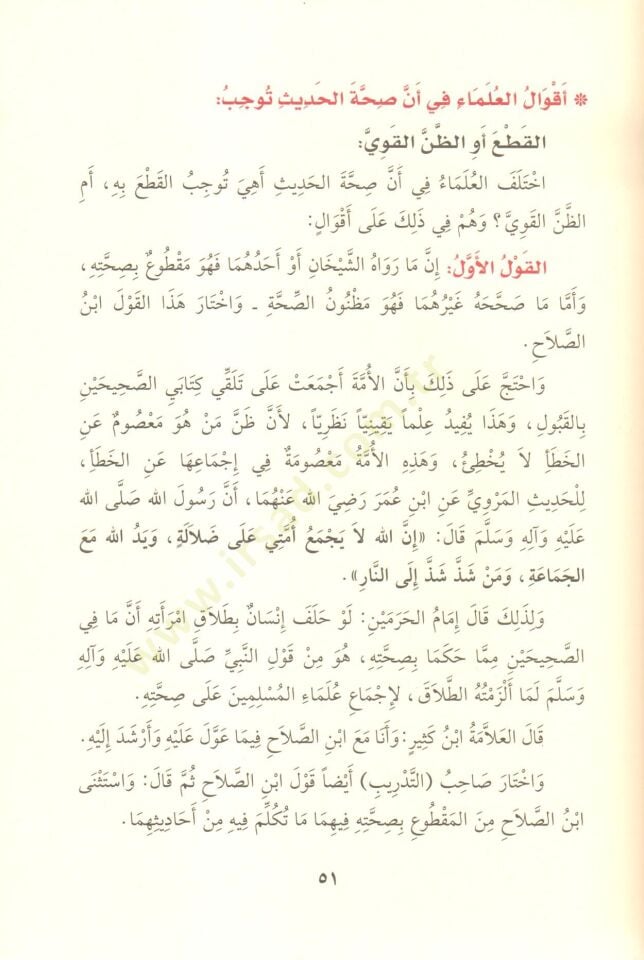 * أَقْوَالُ العُلَمَاءِ فِي أَنَّ صِحَّةَ الحَدِيثِ تُوجِبُ:
القَطْعَ أَوِ الظَّنَّ القَوِيَّ:
اخْتَلَفَ العُلَمَاءُ فِي أَنَّ صِحَّةَ الحَدِيثِ أَهِيَ تُوجِبُ القَطْعَ بِهِ، أَمِ
الظَّنَّ القَوِيَّ؟ وَهُمْ فِي ذَلِكَ عَلَى أَقْوَالٍ:
القَوْلُ الأَوَّلُ: إِنَّ مَا رَوَاهُ الشَّيْخَانِ أَوْ أَحَدُهُمَا فَهُوَ مَقْطُوعٌ بِصِحَّتِهِ،
وَأَمَّا مَا صَحَّحَهُ غَيْرُهُمَا فَهُوَ مَظْنُونُ الصِّحَّةِ ـ وَاخْتَارَ هَذَا القَوْلَ ابْنُ
الصَّلَاحِ.
وَاحْتَجَّ عَلَى ذَلِكَ بِأَنَّ الأُمَّةَ أَجْمَعَتْ عَلَى تَلَقِّي كِتَابَيِ الصَّحِيحَيْنِ
بِالقَبُولِ، وَهَذَا يُفِيدُ عِلْماً يَقِينِيّاً نَظَرِيّاً، لأَنَّ ظَنَّ مَنْ هُوَ مَعْصُومٌ عَنِ
الخَطَأِ لاَ يُخْطِئُ، وَهَذِهِ الأُمَّةُ مَعْصُومَةٌ فِي إِجْمَاعِهَا عَنِ الخَطَأِ،
لِلْحَدِيثِ المَرْوِيِّ عَنِ ابْنِ عُمَرَ رَضِيَ الله عَنْهُمَا، أَنَّ رَسُولَ الله صَلَّى الله
عَلَيْهِ وَآلِهِ وَسَلَّمَ قَالَ: «إِنَّ الله لاَ يَجْمَعُ أُمَّتِي عَلَى ضَلاَلَةٍ، وَيَدُ الله مَعَ
الجَمَاعَةِ، وَمَنْ شَذَّ شَذَّ إِلَى النَّارِ».
وَلِذَلِكَ قَالَ إِمَامُ الحَرَمَيْنِ: لَوْ حَلَفَ إِنْسَانٌ بِطَلاَقِ امْرَأَتِهِ أَنَّ مَا فِي
الصَّحِيحَيْنِ مِمَّا حَكَمَا بِصِحَّتِهِ، هُوَ مِنْ قَوْلِ النَّبِيِّ صَلَّى الله عَلَيْهِ وَآلِهِ
وَسَلَّمَ لَمَا أَلْزَمْتُهُ الطَّلاَقَ، لإِجْمَاعِ عُلَمَاءِ المُسْلِمِينَ عَلَى صِحَّتِهِ.
قَالَ العَلاَّمَةُ ابْنُ كَثِيرٍ: وَأَنَا مَعَ ابْنِ الصَّلاَحِ فِيمَا عَوَّلَ عَلَيْهِ وَأَرْشَدَ إِلَيْهِ.
وَاخْتَارَ صَاحِبُ (التَّدْرِيبِ) أَيْضاً قَوْلَ ابْنِ الصَّلاَحِ ثُمَّ قَالَ: وَاسْتَثْنَى
ابْنُ الصَّلاَحِ مِنَ المَقْطُوعِ بِصِحَّتِهِ فِيهِمَا مَا تُكُلِّمَ فِيهِ مِنْ أَحَادِيثِهِمَا.
٥١
www.irsad.com.tr